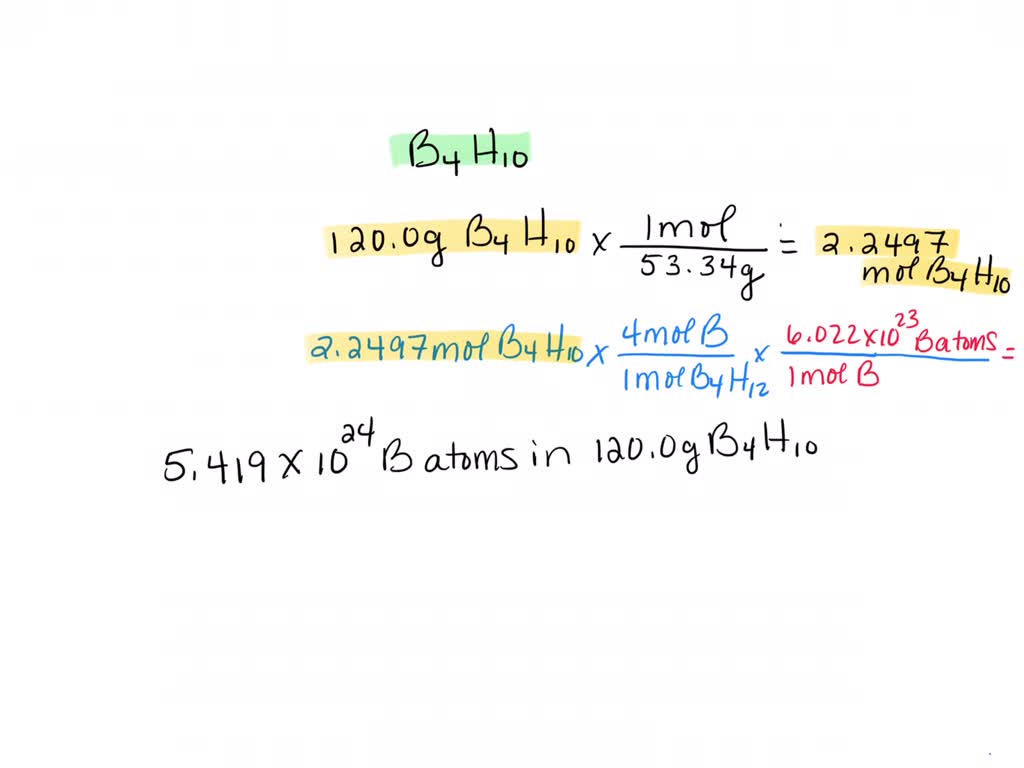 B₄H₁₀
120.0g B₄H₁₀ × 1mol / 53.34g = 2.2497 mol B₄H₁₀
2.2497mol B₄H₁₀ × 4mol B / 1mol B₄H₁₂ × 6.022×10²³ B atoms / 1mol B =
5.419 × 10²⁴ B atoms in 120.0g B₄H₁₀